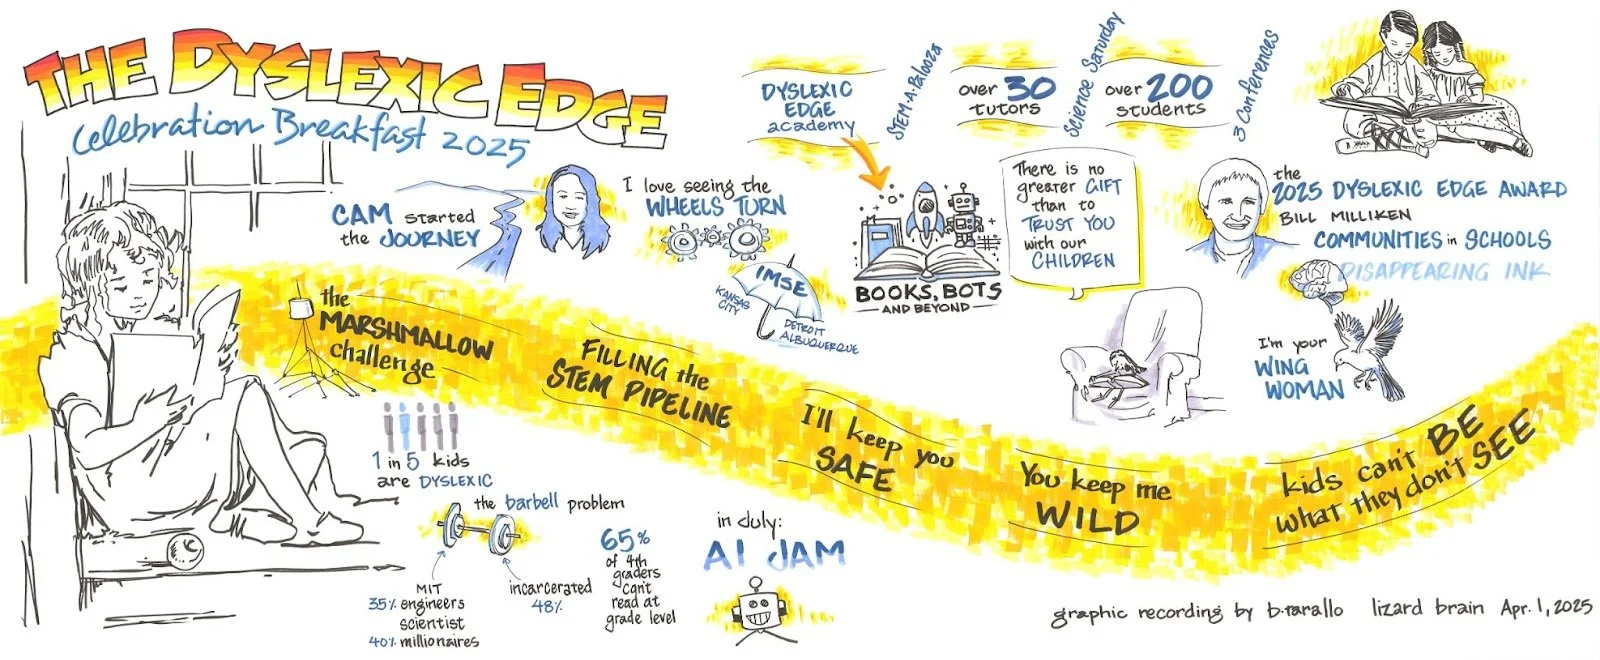 THE DYSLEXIC EDGE
Celebration Breakfast 2025
CAM started
the JOURNEY
I love seeing the
WHEELS TURN
IMSE
KANSAS
CITY
DETROIT
ALBUQUERQUE
DYSLEXIC
EDGE
academy
STEM-A-Palooza
over 30
tutors
Science Saturday
over 200
students
3 Conferences
BOOKS, BOTS
AND BEYOND
There is no
greater GIFT
than to
TRUST YOU
with our
CHILDREN
the
2025 DYSLEXIC EDGE AWARD
BILL MILLIKEN
COMMUNITIES in SCHOOLS
DISAPPEARING INK
I'm your
WING
WOMAN
the
MARSHMALLOW
challenge
FILLING the
STEM PIPELINE
I'll keep you
SAFE
You keep me
WILD
kids can't BE
what they don't SEE
1 in 5 kids
are DYSLEXIC
the barbell problem
MIT
35% engineers
scientist
40% millionaires
incarcerated
48%
65%
of 4th
graders
can't
read at
grade level
in July:
AI JAM
graphic recording by b.tarallo lizard brain Apr. 1, 2025